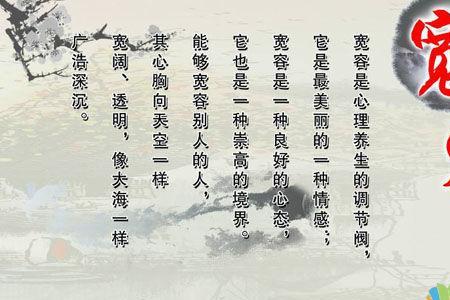 宽
宽容是心理养生的调节阀，
它是最美丽的一种情感；，
宽容是一种良好的心态，
它也是一种崇高的境界。
能够宽容别人的人，
其心胸向天空一样
宽阔、透明，像大海一样
广浩深沉。